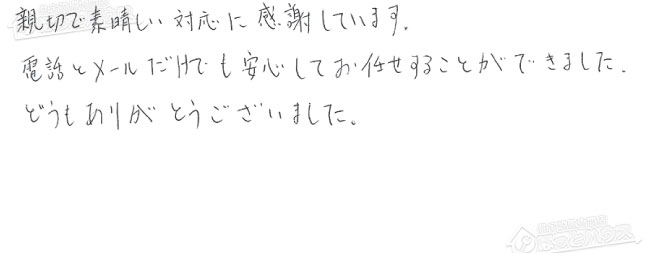 親切で素晴しい対応に感謝しています。
電話とメールだけでも安心してお任せすることができました.
どうもありがとうございました。